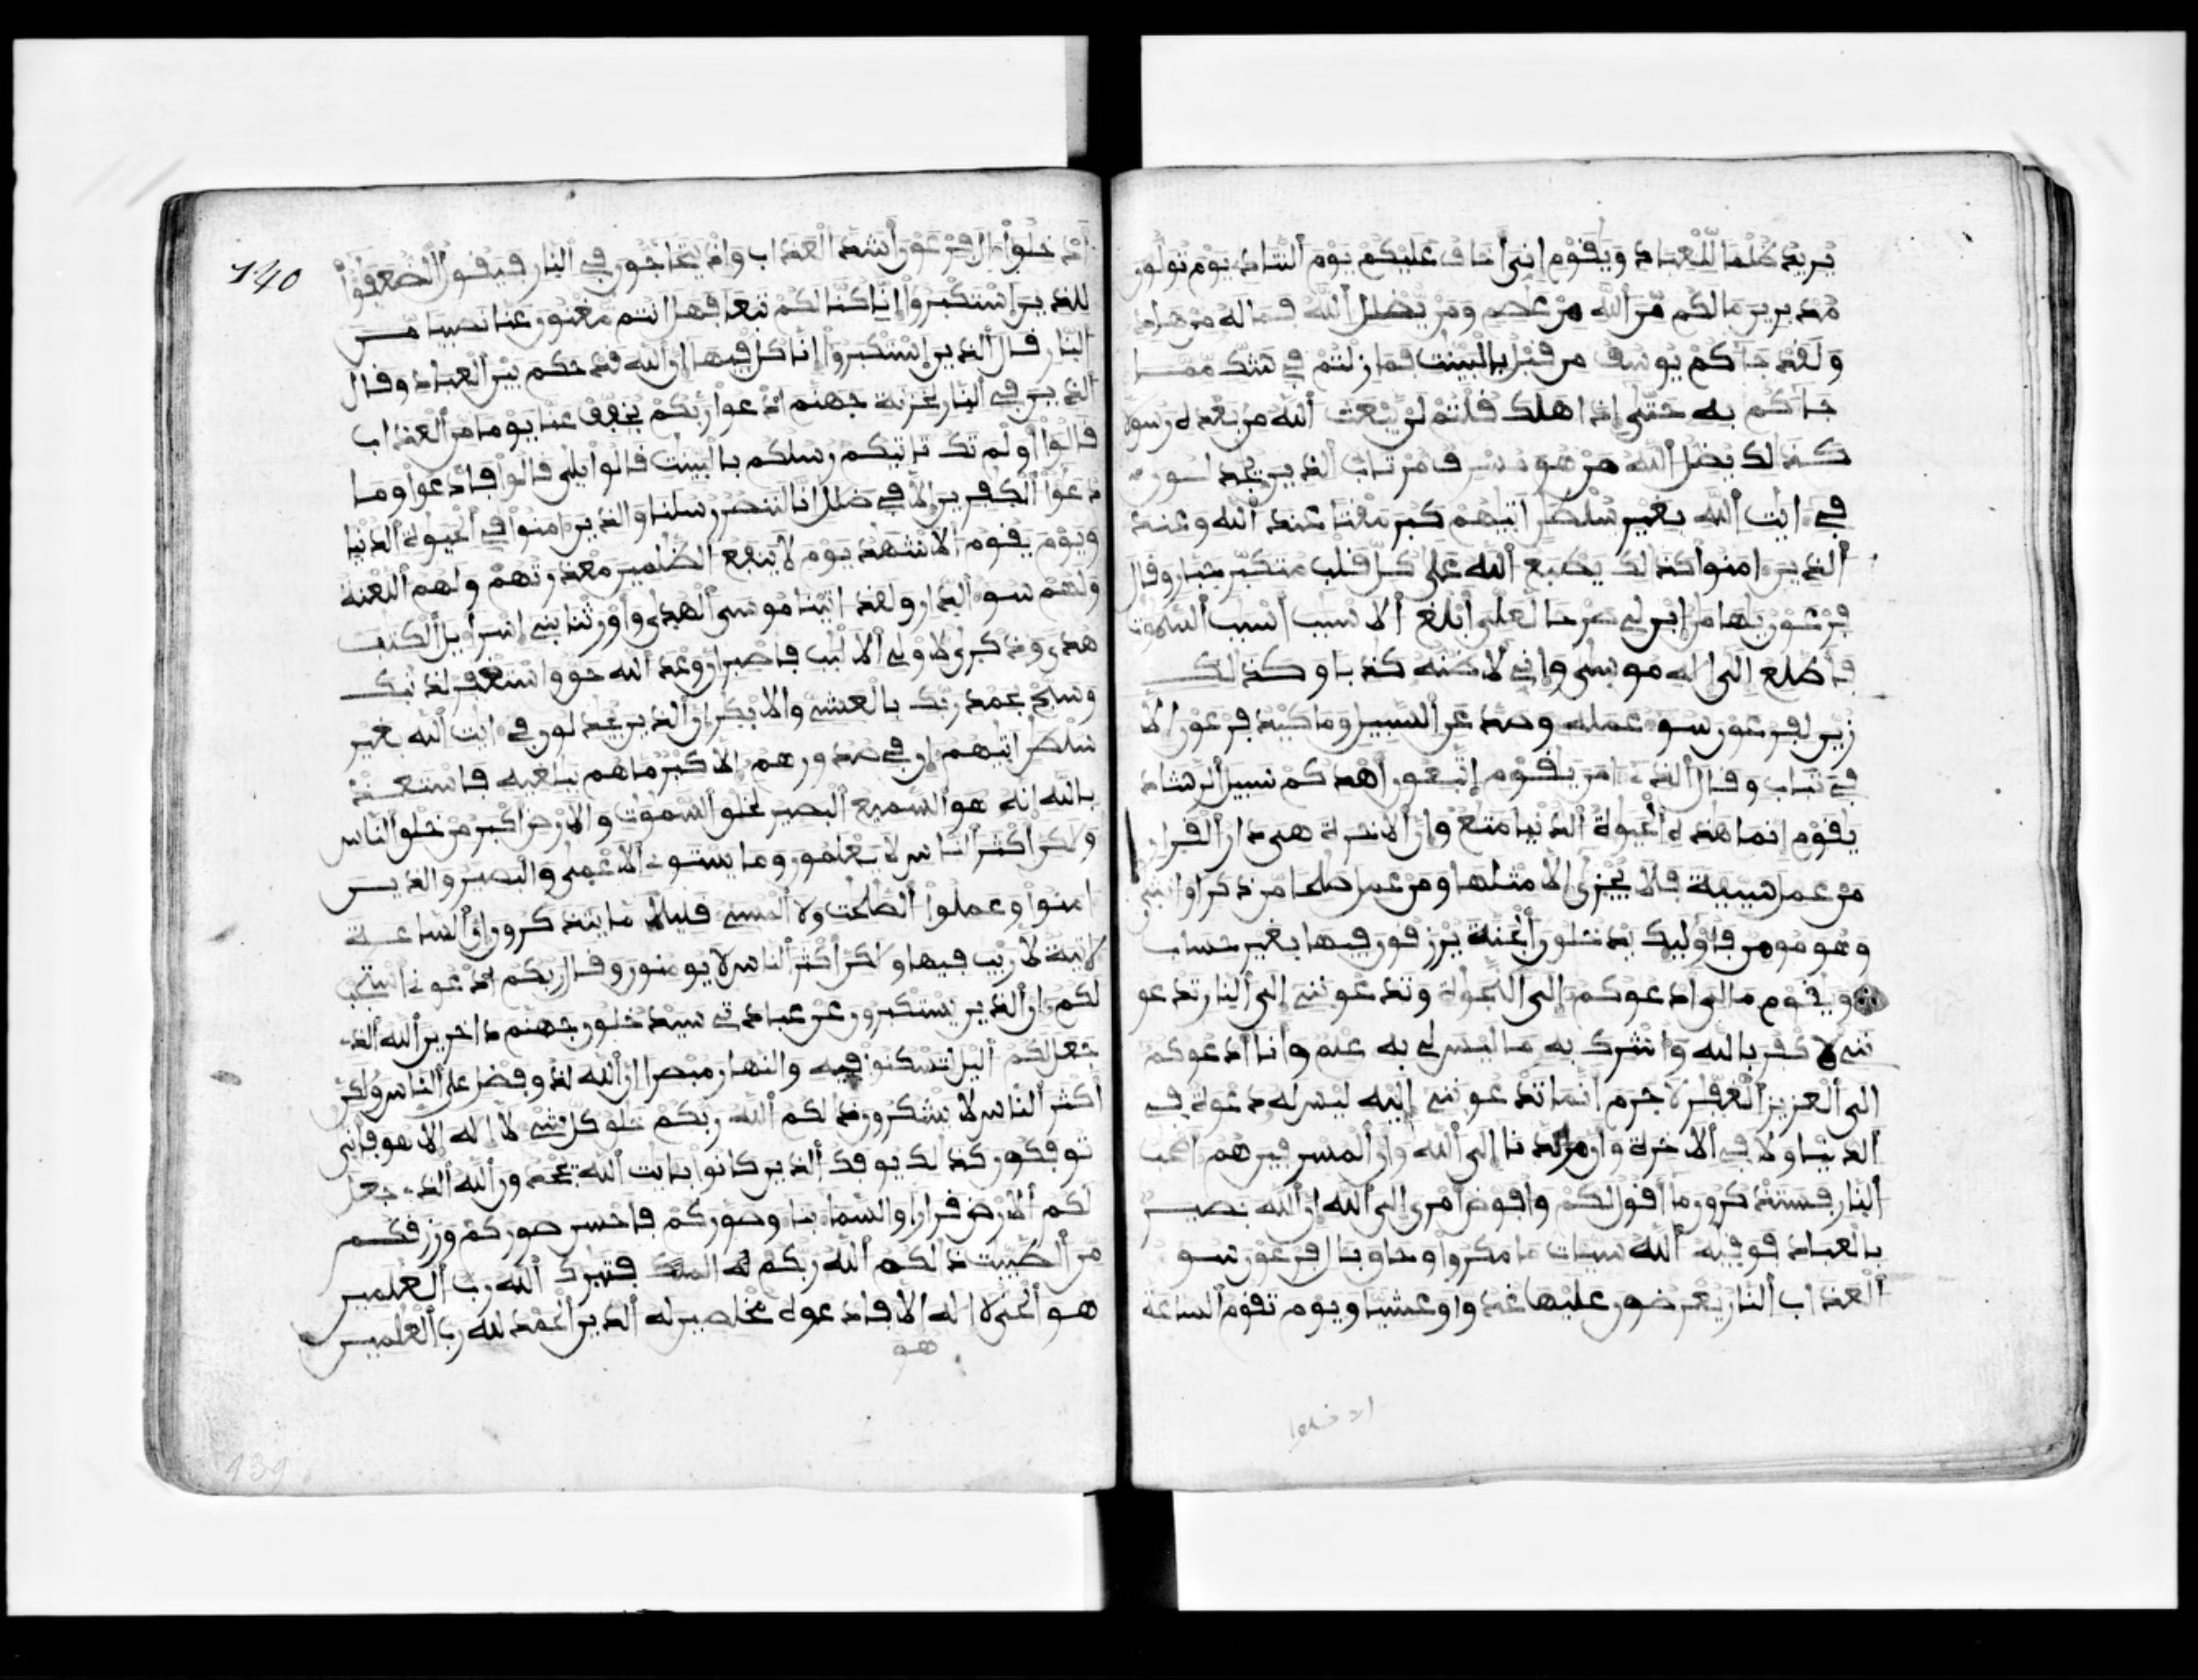 يريد ظلما للعباد ويقوم اني أخاف عليكم يوم التناد يوم تولون
مدبرين مالكم من الله من عاصم ومن يضلل الله فما له من هاد
ولقد جاكم يوسف من قبل بالبينت فما زلتم في شك مما
جاكم به حتى إذا هلك قلتم لن يبعث الله من بعده رسولا
كذلك يضل الله من هو مسرف مرتاب الذين يجدلون
في ايت الله بغير سلطن اتيهم كبر مقتا عند الله وعند
الذين امنوا كذلك يطبع الله على كل قلب متكبر جبار وقال
فرعون يهامن ابن لي صرحا لعلي أبلغ الاسبب اسبب السموت
فأطلع الى اله موسى واني لاظنه كذبا وكذلك
زين لفرعون سوء عمله وصد عن السبيل وما كيد فرعون الا
في تباب وقال الذي امن يقوم اتبعون اهدكم سبيل الرشاد
يقوم انما هذه الحيوة الدنيا متع وان الاخرة هي دار القرار
من عمل سيية فلا يجزى الا مثلها ومن عمل صلحا من ذكر او انثى
وهو مومن فأوليك يدخلون الجنة يرزقون فيها بغير حساب
ويقوم مالي ادعوكم الى النجوة وتدعونني الى النار تدعو
نني لاكفر بالله واشرك به ما ليس لي به علم وانا ادعوكم
الى العزيز الغفر لا جرم انما تدعونني اليه ليس له دعوة في
الدنيا ولا في الاخرة وان مردنا الى الله وان المسرفين هم اصحب
النار فستذكرون ما اقول لكم وافوض امري الى الله ان الله بصير
بالعباد فوقيه الله سيات ما مكروا وحاق بال فرعون سوء
العذاب النار يعرضون عليها غدوا وعشيا ويوم تقوم الساعة
ادخلوا
140
ادخلوا ال فرعون أشد العذاب واذ يتحاجون في النار فيقول الضعفوا
للذين استكبروا انا كنا لكم تبعا فهل انتم مغنون عنا نصيبا من
النار قال الذين استكبروا انا كل فيها ان الله قد حكم بين العباد وقال
الذين في النار لخزنة جهنم ادعوا ربكم يخفف عنا يوما من العذاب
قالوا اولم تك تاتيكم رسلكم بالبينت قالوا بلى قالوا فادعوا وما
دعوا الكفرين الا في ضلل انا لننصر رسلنا والذين امنوا في الحيوة الدنيا
ويوم يقوم الاشهد يوم لا ينفع الظلمين معذرتهم ولهم اللعنة
ولهم سوء الدار ولقد اتينا موسى الهدى واورثنا بني اسرايل الكتب
هدى وذكرى لاولي الالبب فاصبر ان وعد الله حق واستغفر لذنبك
وسبح بحمد ربك بالعشي والابكر ان الذين يجدلون في ايت الله بغير
سلطن اتيهم ان في صدورهم الا كبر ما هم ببلغيه فاستعذ
بالله انه هو السميع البصير لخلق السموت والارض اكبر من خلق الناس
ولكن اكثر الناس لا يعلمون وما يستوي الاعمى والبصير والذين
امنوا وعملوا الصلحت ولا المسي قليلا ما يتذكرون ان الساعة
لاتية لا ريب فيها ولكن اكثر الناس لا يومنون وقال ربكم ادعوني استجب
لكم ان الذين يستكبرون عن عبادتي سيدخلون جهنم داخرين الله الذي
جعل لكم اليل لتسكنوا فيه والنهار مبصرا ان الله لذو فضل على الناس ولكن
اكثر الناس لا يشكرون ذلكم الله ربكم خلق كل شي لا اله الا هو فانى
توفكون كذلك يوفك الذين كانوا بايت الله يجحدون الله الذي جعل
لكم الارض قرارا والسماء بنا وصوركم فاحسن صوركم ورزقكم
من الطيبت ذلكم الله ربكم فتبرك الله رب العلمين
هو الحي لا اله الا فادعوه مخلصين له الدين الحمد لله رب العلمين
هو
139